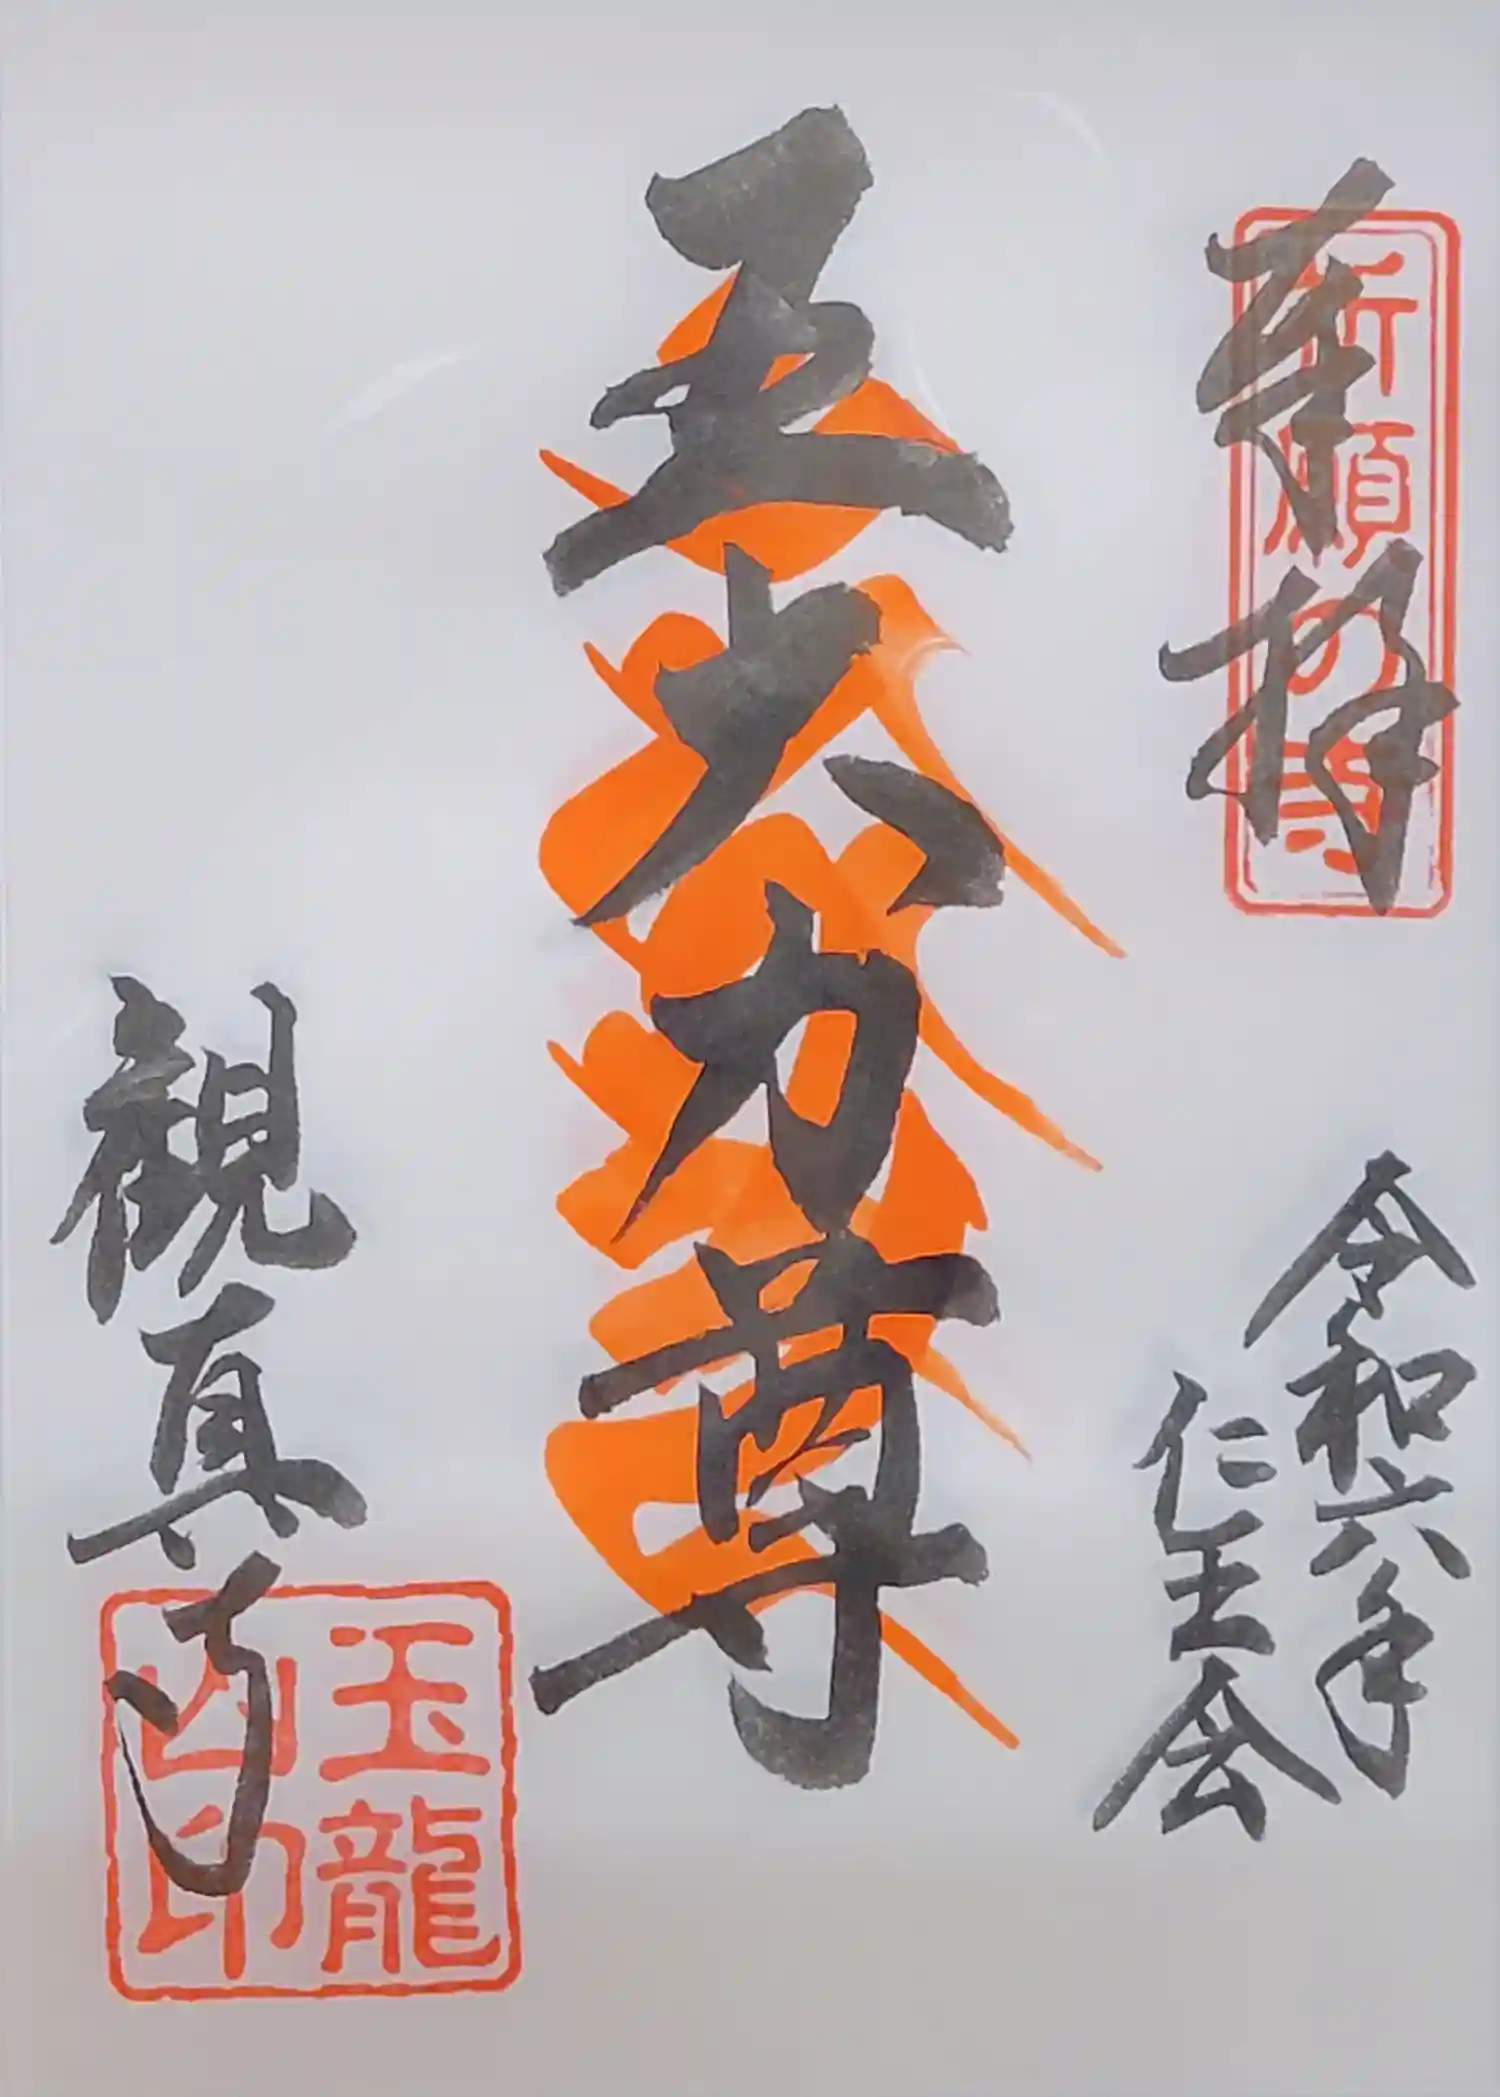 奉拝
祈願の寺
令和六年
仁王会
五大力尊
観真寺
玉龍
山印